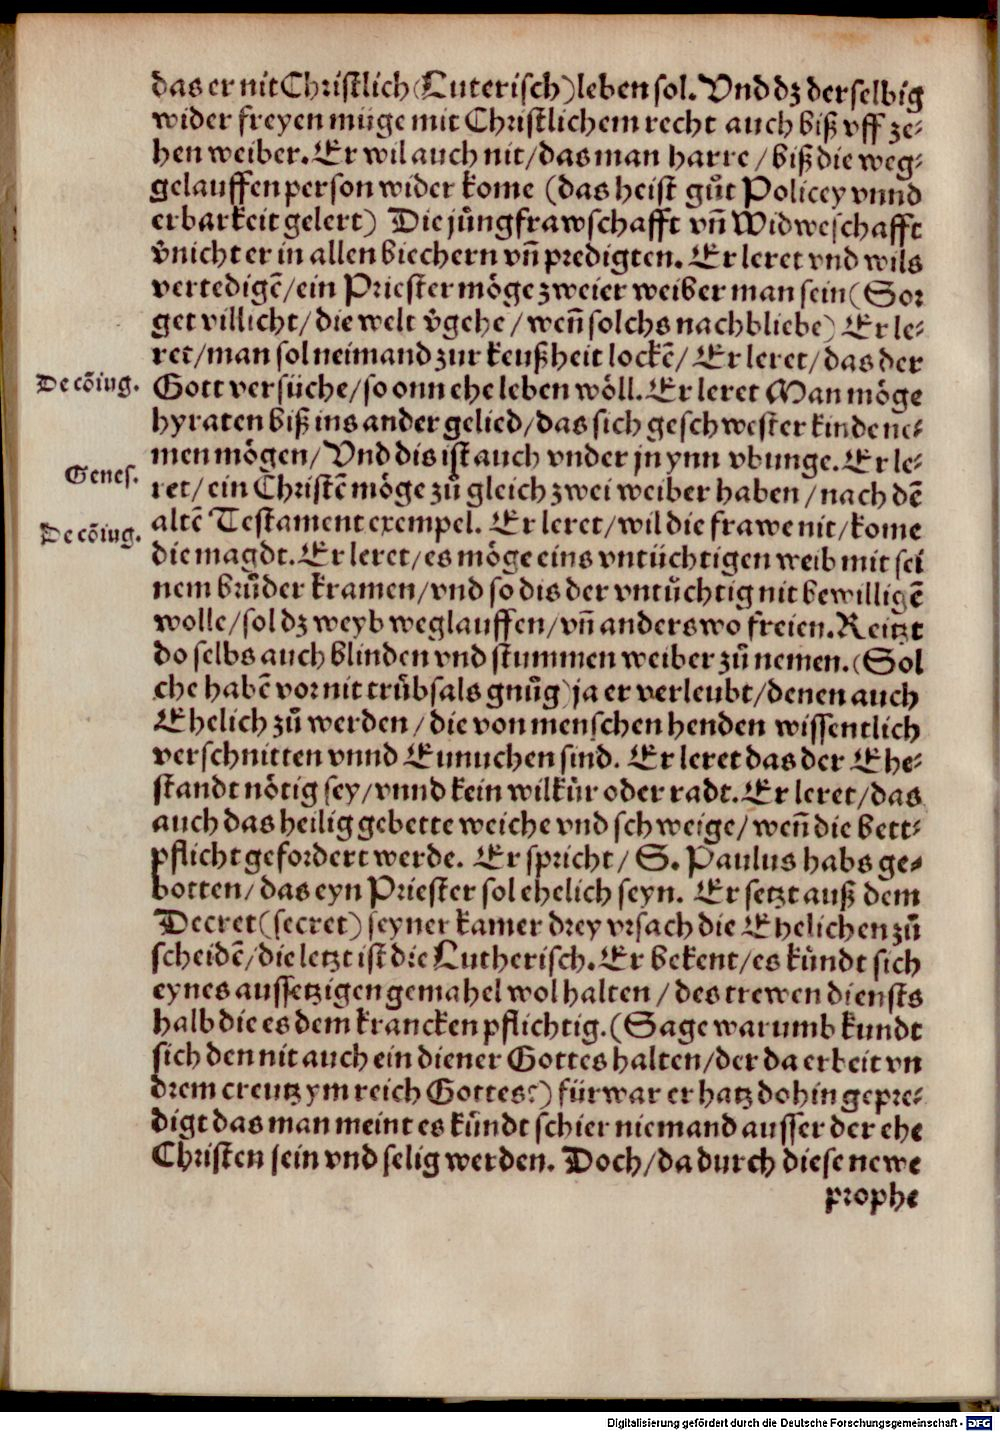 das er nit Christlich (Luterisch) leben sol. Vnd dz der selbig
wider freyen müge mit Christlichem recht auch biß vff ze-
hen weiber. Er wil auch nit / das man harre / biß die weg-
gelauffen person wider kome (das heist gůt Policey vnnd
erbarkeit gelert) Die jůngfrawschafft vñ Widweschafft
v̊nicht er in allen biechern vñ predigten. Er leret vnd wils
vertedigē / ein Priester möge zweier weiber man sein (Sor
get villicht / die welt v̊gehe / weñ solchs nachbliebe) Er le-
ret / man sol neimand zur keußheit lockē / Er leret / das der
De cōiug. Gott versüche / so onn ehe leben wöll. Er leret Man möge
hyraten biß ins ander gelied / das sich geschwester kinde ne-
men mögen / Vnd dis ist auch vnder jn ynn vbunge. Er le-
Genes. ret / ein Christē möge zů gleich zwei weiber haben / nach dē
altē Testament exempel. Er leret / wil die frawe nit / kome
De cōiug. die magdt. Er leret / es möge eins vntüchtigen weib mit sei
nem brůder kramen / vnd so dis der vntüchtig nit bewilligē
wolle / sol dz weyb weglauffen / vñ anderswo freien. Reitzt
do selbs auch blinden vnd stummen weiber zů nemen. (Sol
che habē vor nit trübsals gnůg) ja er verleubt / denen auch
Ehelich zů werden / die von menschen henden wissentlich
verschnitten vnnd Eunuchen sind. Er leret das der Ehe-
standt nötig sey / vnnd kein wilkür oder radt. Er leret / das
auch das heilig gebette weiche vnd schweige / weñ die bett-
pflicht gefordert werde. Er spricht / S. Paulus habs ge-
botten / das eyn Priester sol ehelich seyn. Er setzt auß dem
Decret (secret) seyner kamer drey vrsach die Ehelichen zů
scheidē / die letzt ist die Lutherisch. Er bekent / es kündt sich
eynes aussetzigen gemahel wol halten / des trewen diensts
halb die es dem krancken pflichtig. (Sage warumb kundt
sich den nit auch ein diener Gottes halten / der da erbeit vn
drem creutz ym reich Gottes?) fürwar er hatz dohin gepre-
digt das man meint es kündt schier niemand ausser der ehe
Christen sein vnd selig werden. Doch / da durch diese newe
prophe
Digitalisierung gefördert durch die Deutsche Forschungsgemeinschaft - DFG